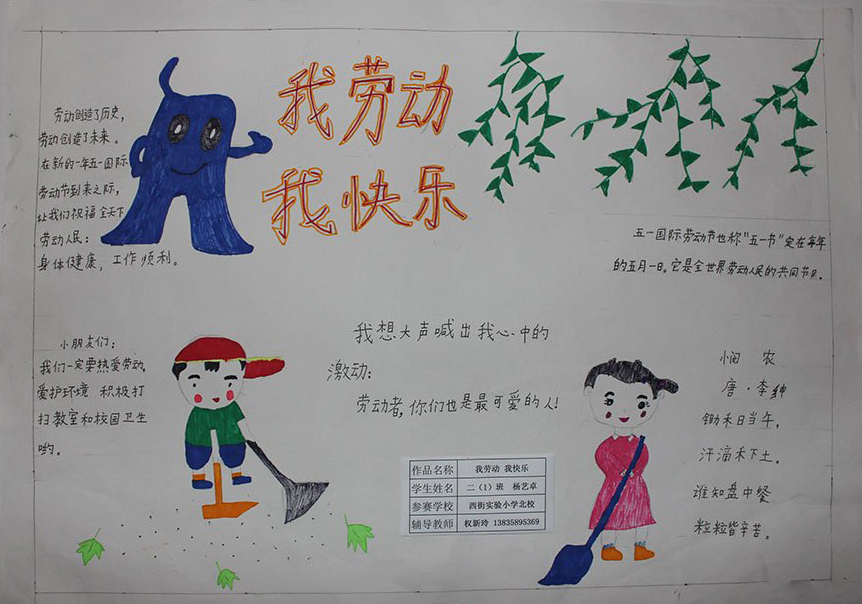 我劳动
我快乐
劳动创造了历史，
劳动创造了未来。
在新的一年五一国际
劳动节到来之际，
让我们祝福全天下
劳动人民：
身体健康，工作顺利。
五一国际劳动节也称"五一节"定在每年
的五月一日。它是全世界劳动人民的共同节日。
小朋友们：
我们一定要热爱劳动，
爱护环境 积极打
扫教室和校园卫生
哟。
我想大声喊出我心中的
激动：
劳动者，你们也是最可爱的人！
悯 农
唐·李绅
锄禾日当午，
汗滴禾下土。
谁知盘中餐
粒粒皆辛苦。
作品名称 我劳动 我快乐
学生姓名 二（1）班 杨艺卓
参赛学校 西街实验小学北校
辅导教师 权新玲 13835895369